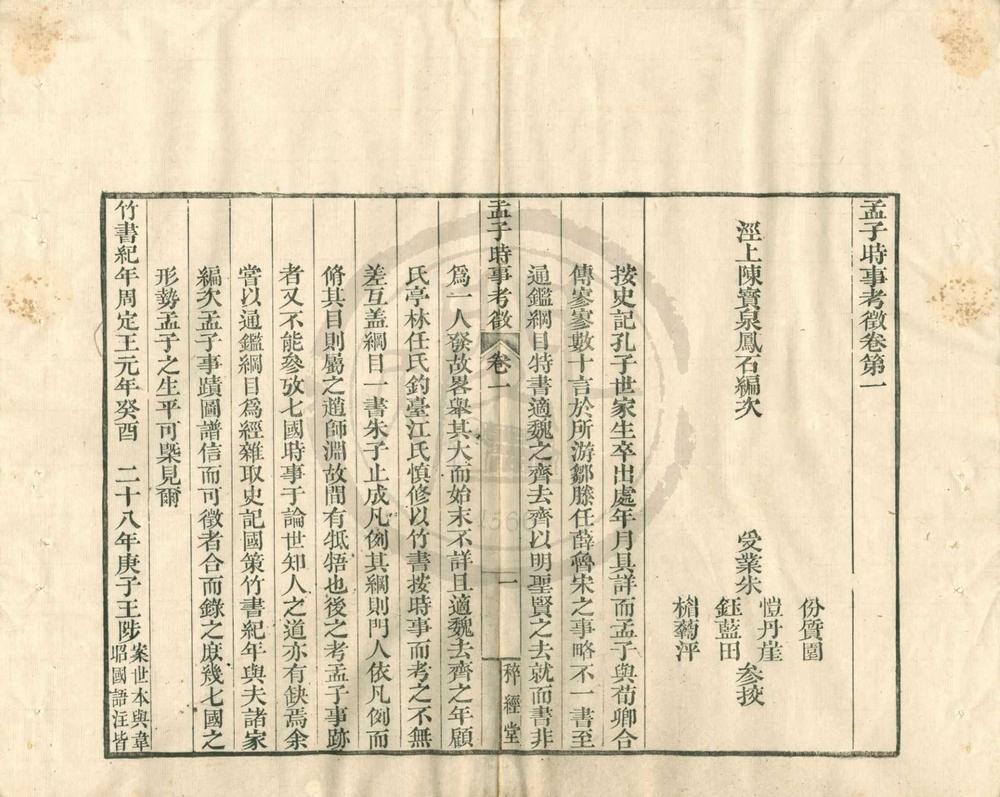 孟子時事考徵卷第一
涇上陳寶泉鳳石編次
受業朱
份質園
愷丹崖
鈺藍田
楷蒭泙
參挍
按史記孔子世家生卒出處年月具詳而孟子與荀卿合
傳寥寥數十言於所游鄒滕任薛魯宋之事略不一書至
通鑑綱目特書適魏之齊去齊以明聖賢之去就而書非
孟子時事考徵
卷一
一
稡經堂
爲一人發故畧舉其大而始末不詳且適魏去齊之年顧
氏亭林任氏釣臺江氏慎修以竹書按時事而考之不無
差互盖綱目一書朱子止成凡例其綱則門人依凡例而
脩其目則屬之趙師淵故間有牴牾也後之考孟子事跡
者又不能參攷七國時事于論世知人之道亦有缺焉余
嘗以通鑑綱目爲經雜取史記國策竹書紀年與夫諸家
編次孟子事蹟圖譜信而可徵者合而錄之庶幾七國之
形勢孟子之生平可槩見爾
竹書紀年周定王元年癸酉 二十八年庚子王陟
案世本與韋
昭國語注皆